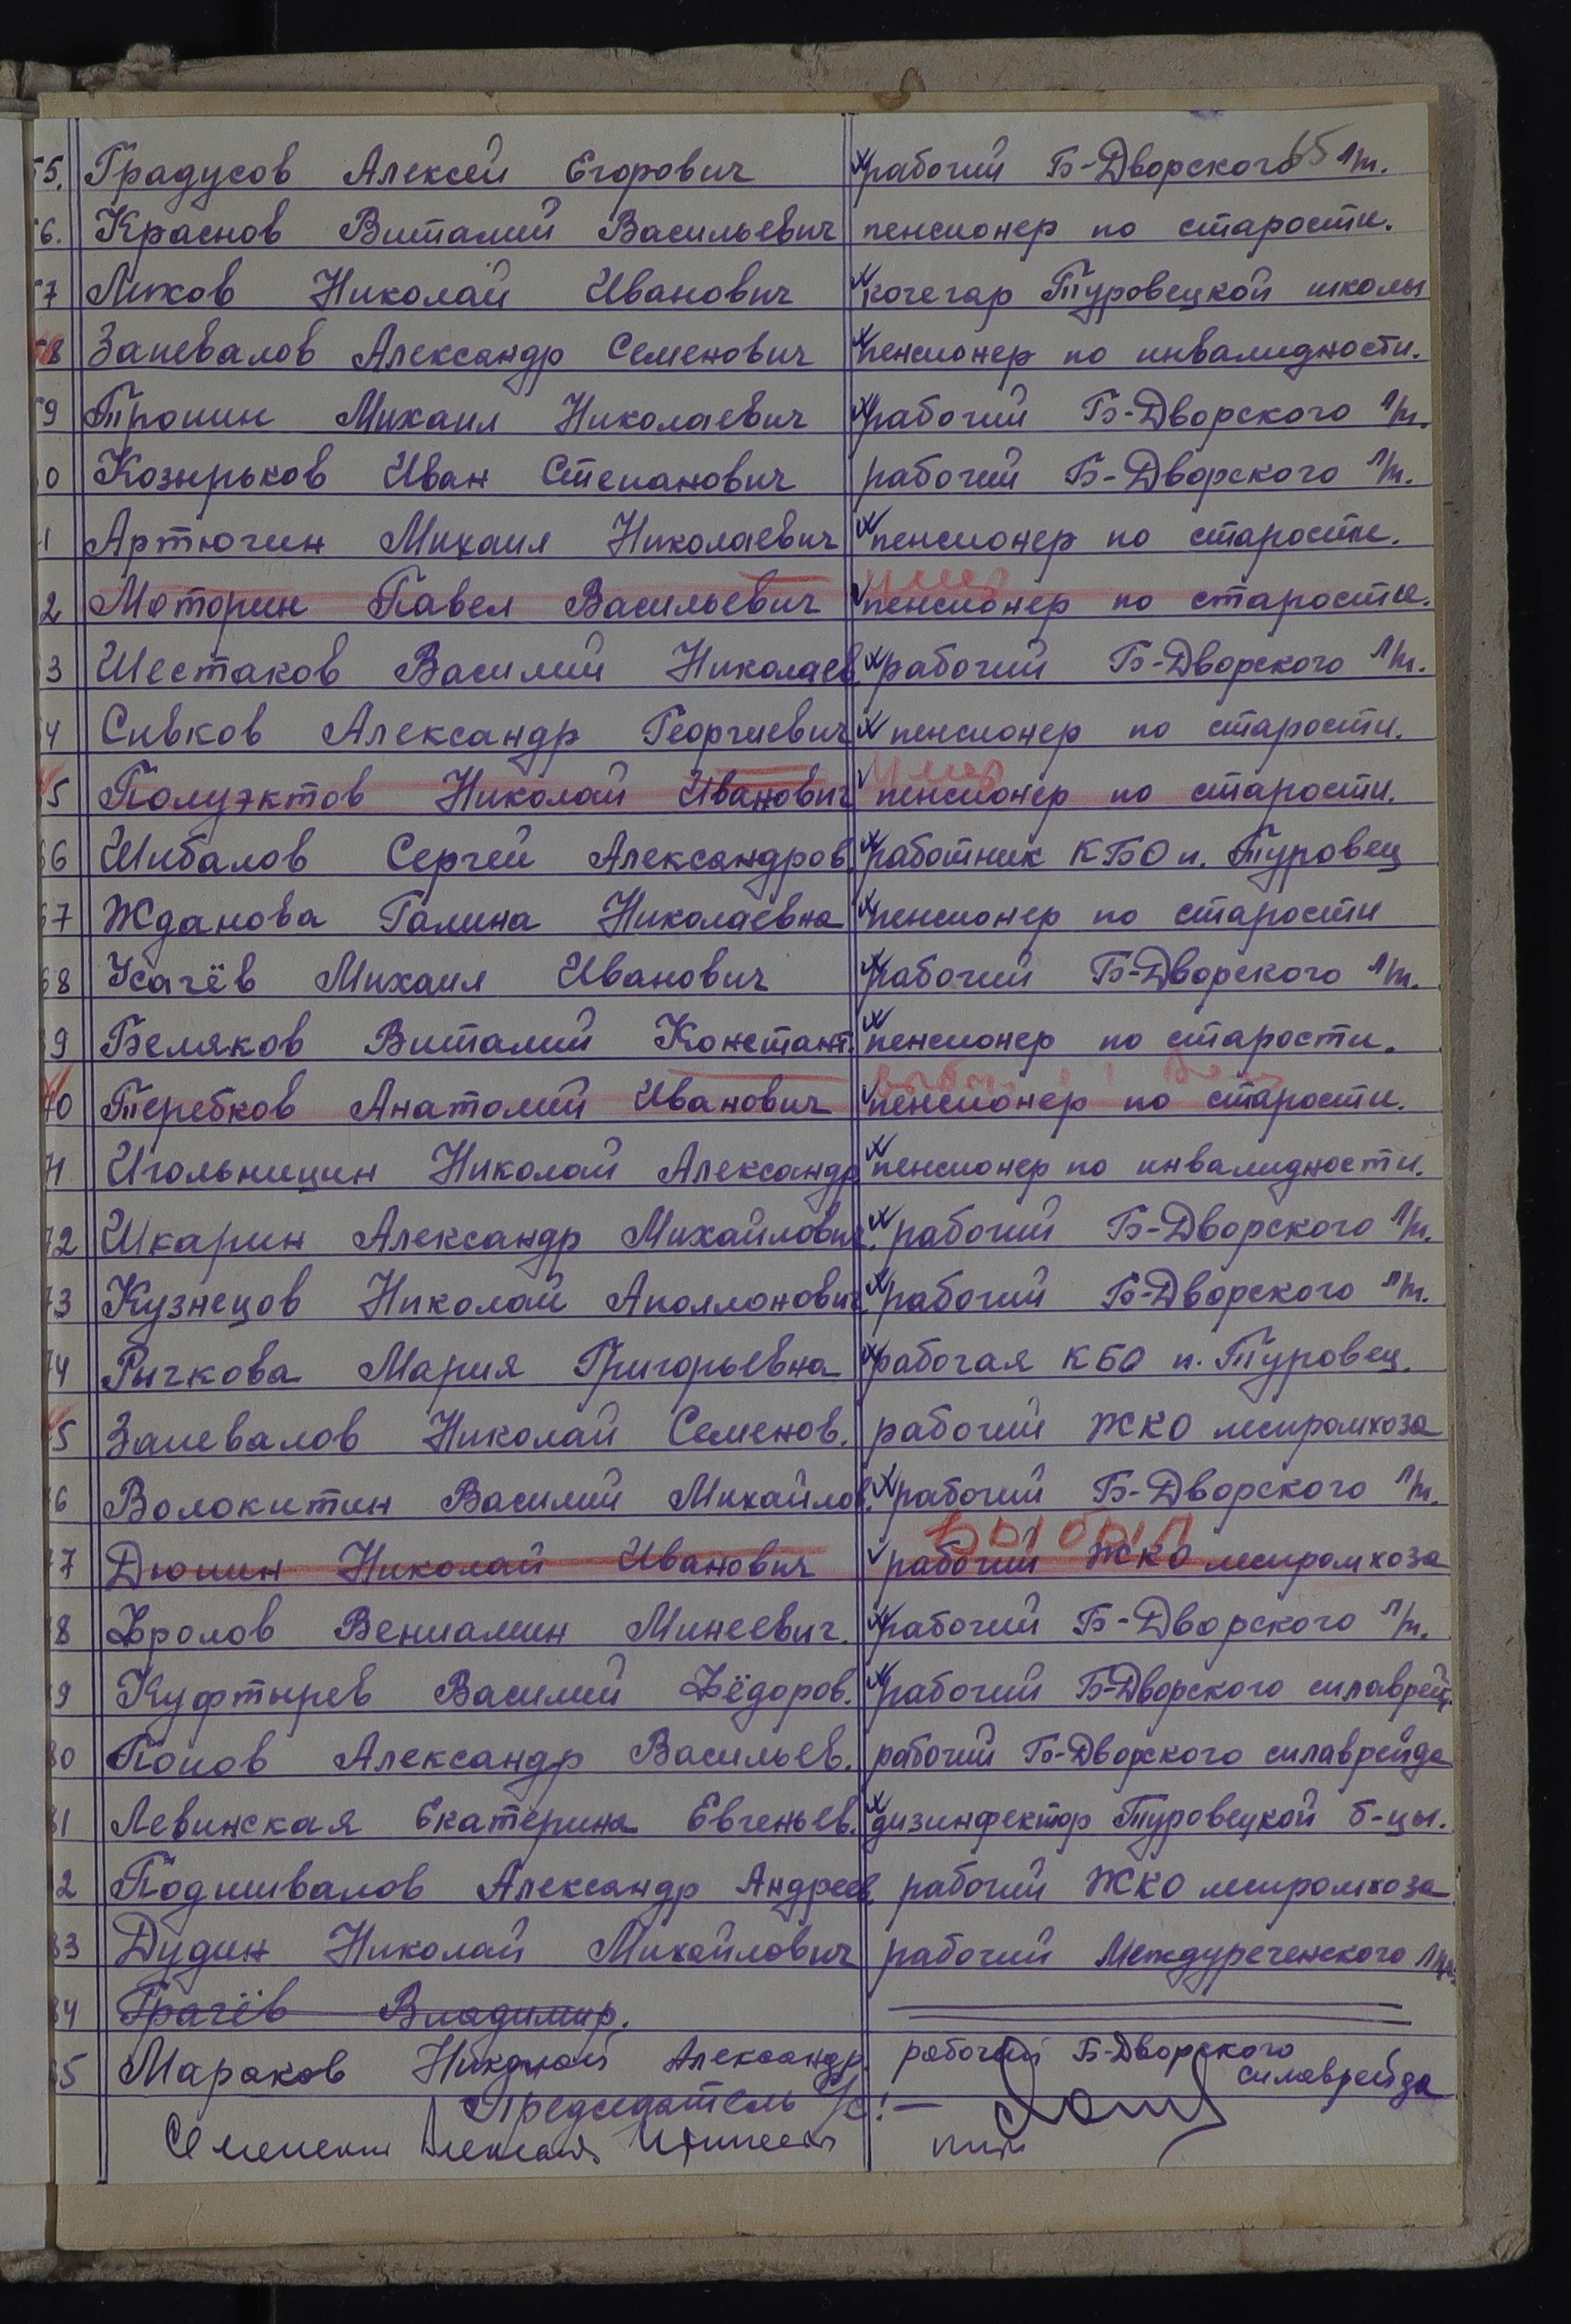 65
55. Градусов Алексей Егорович рабочий Б-Дворского л/п.
56. Краснов Виталий Васильевич пенсионер по старости.
57 Лихов Николай Иванович кочегар Туровецкой школы
58 Запевалов Александр Семенович пенсионер по инвалидности.
59 Тропин Михаил Николаевич рабочий Б-Дворского л/п.
0 Козырьков Иван Степанович рабочий Б-Дворского л/п.
1 Артюгин Михаил Николаевич пенсионер по старости.
умер
2 Моторин Павел Васильевич пенсионер по старости.
3 Шестаков Василий Николаев. рабочий Б-Дворского л/п.
4 Сивков Александр Георгиевич пенсионер по старости.
умер
5 Полуэктов Николай Иванович пенсионер по старости.
66 Шибалов Сергей Александров. работник КБО п. Туровец
67 Жданова Галина Николаевна пенсионер по старости
68 Усачёв Михаил Иванович рабочий Б-Дворского л/п.
69 Беляков Виталий Констант. пенсионер по старости.
70 Теребков Анатолий Иванович пенсионер по старости.
71 Игольницин Николай Александр. пенсионер по инвалидности.
72 Шкарин Александр Михайлович. рабочий Б-Дворского л/п.
73 Кузнецов Николай Аполлонович. рабочий Б-Дворского л/п.
74 Рычкова Мария Григорьевна рабочая КБО п. Туровец.
75 Запевалов Николай Семенов. рабочий ЖКО леспромхоза
76 Волокитин Василий Михайлов. рабочий Б-Дворского л/п.
выбыл
77 Дюпин Николай Иванович рабочий ЖКО леспромхоза
78 Фролов Вениамин Минеевич. рабочий Б-Дворского л/п.
79 Куфтырев Василий Фёдоров. рабочий Б-Дворского сплаврейд.
80 Попов Александр Васильев. рабочий Б-Дворского сплаврейда
81 Левинская Екатерина Евгеньев. дизинфектор Туровецкой б-цы.
82 Подшивалов Александр Андреев. рабочий ЖКО леспромхоза
83 Дудин Николай Михайлович рабочий Междуреченского
84 Грачёв Владимир.
85 Мараков Николай Александр. рабочий Б-Дворского
сплаврейда
Председатель с/с: —